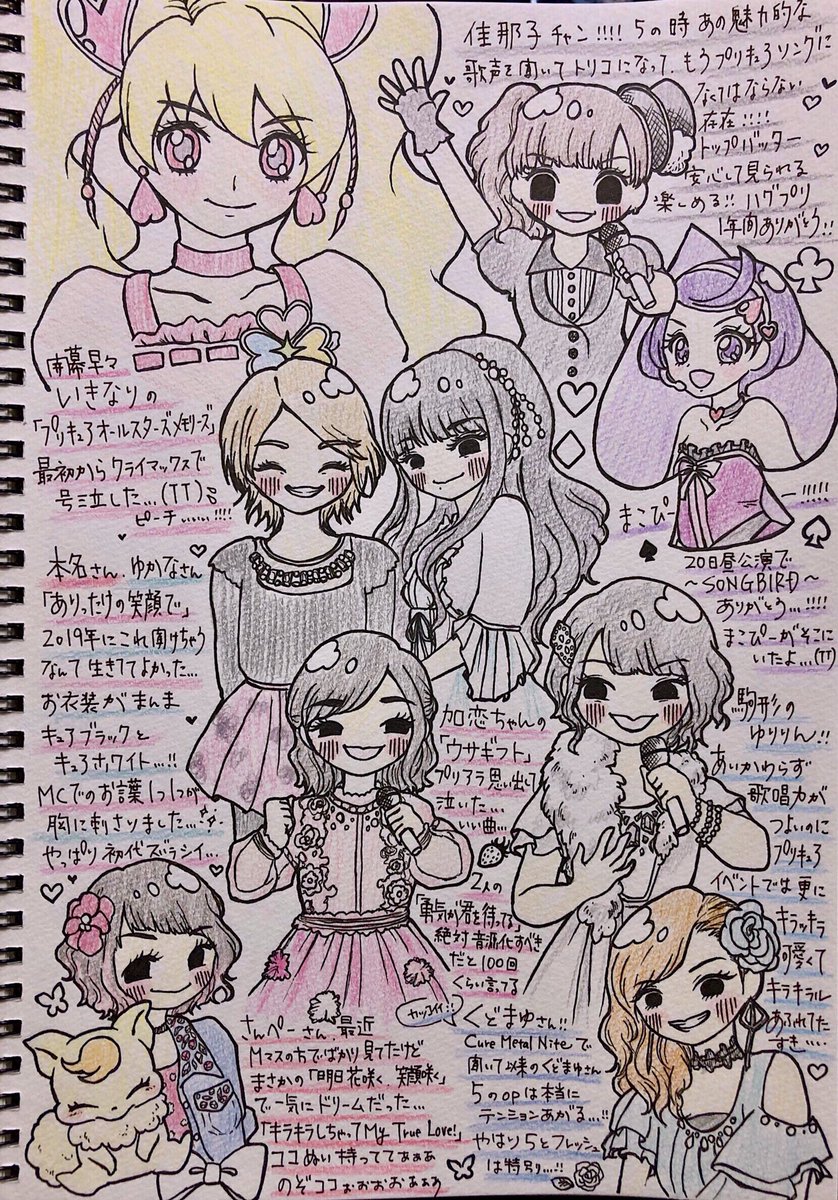 佳那子チャン!!!! 5の時あの魅力的な
歌声を聞いてトリコになって、もうプリキュアソングに
なくてはならない
存在!!!!
トップバッター
安心して見られる
楽しめる!! ハグプリ
1年間ありがとう!!
開幕早々
いきなりの
「プリキュアオールスターズメモリーズ」
最初からクライマックスで
号泣した…(TT)
ピーチぃぃぃぃ!!!!
まこぴー ー!!!!!
20日昼公演で
〜SONGBIRD〜
ありがとう…!!!!
まこぴーがそこに
いたよ…(TT)
本名さん、ゆかなさん
「ありったけの笑顔で」
2019年にこれ聞けちゃう
なんて生きててよかった…
お衣装がまんま
キュアブラックと
キュアホワイト…!!
MCでのお言葉1つ1つが
胸に刺さりました…
やっぱり初代ズラシイ…
加恋ちゃんの
「ウサギフト」
プリアラ思い出して
泣いた…
いい曲…
駒形の
ゆりりん!!
あいかわらず
歌唱力が
つよいのに
プリキュア
イベントでは更に
キラッキラ
可愛くて
キラキラル
あふれてた
すき…
2人の
「勇気が君を待ってる」
絶対音源化すべき
だと100回
くらい言ってる
さんぺーさん、最近
Mマスの方でばかり見てたけど
まさかの「明日花咲く、笑顔咲く」
で一気にドリームだった…
「キラキラしちゃってMy True Love!」
ココぬい持っててぁぁぁ
のぞココぉぉぉぉぁぁぁ
くどまゆさん!!
Cure Metal Niteで
聞いて以来のくどまゆさん
5のopは本当に
テンションあがる…!!
やはり5とフレッシュ
は特別…!!